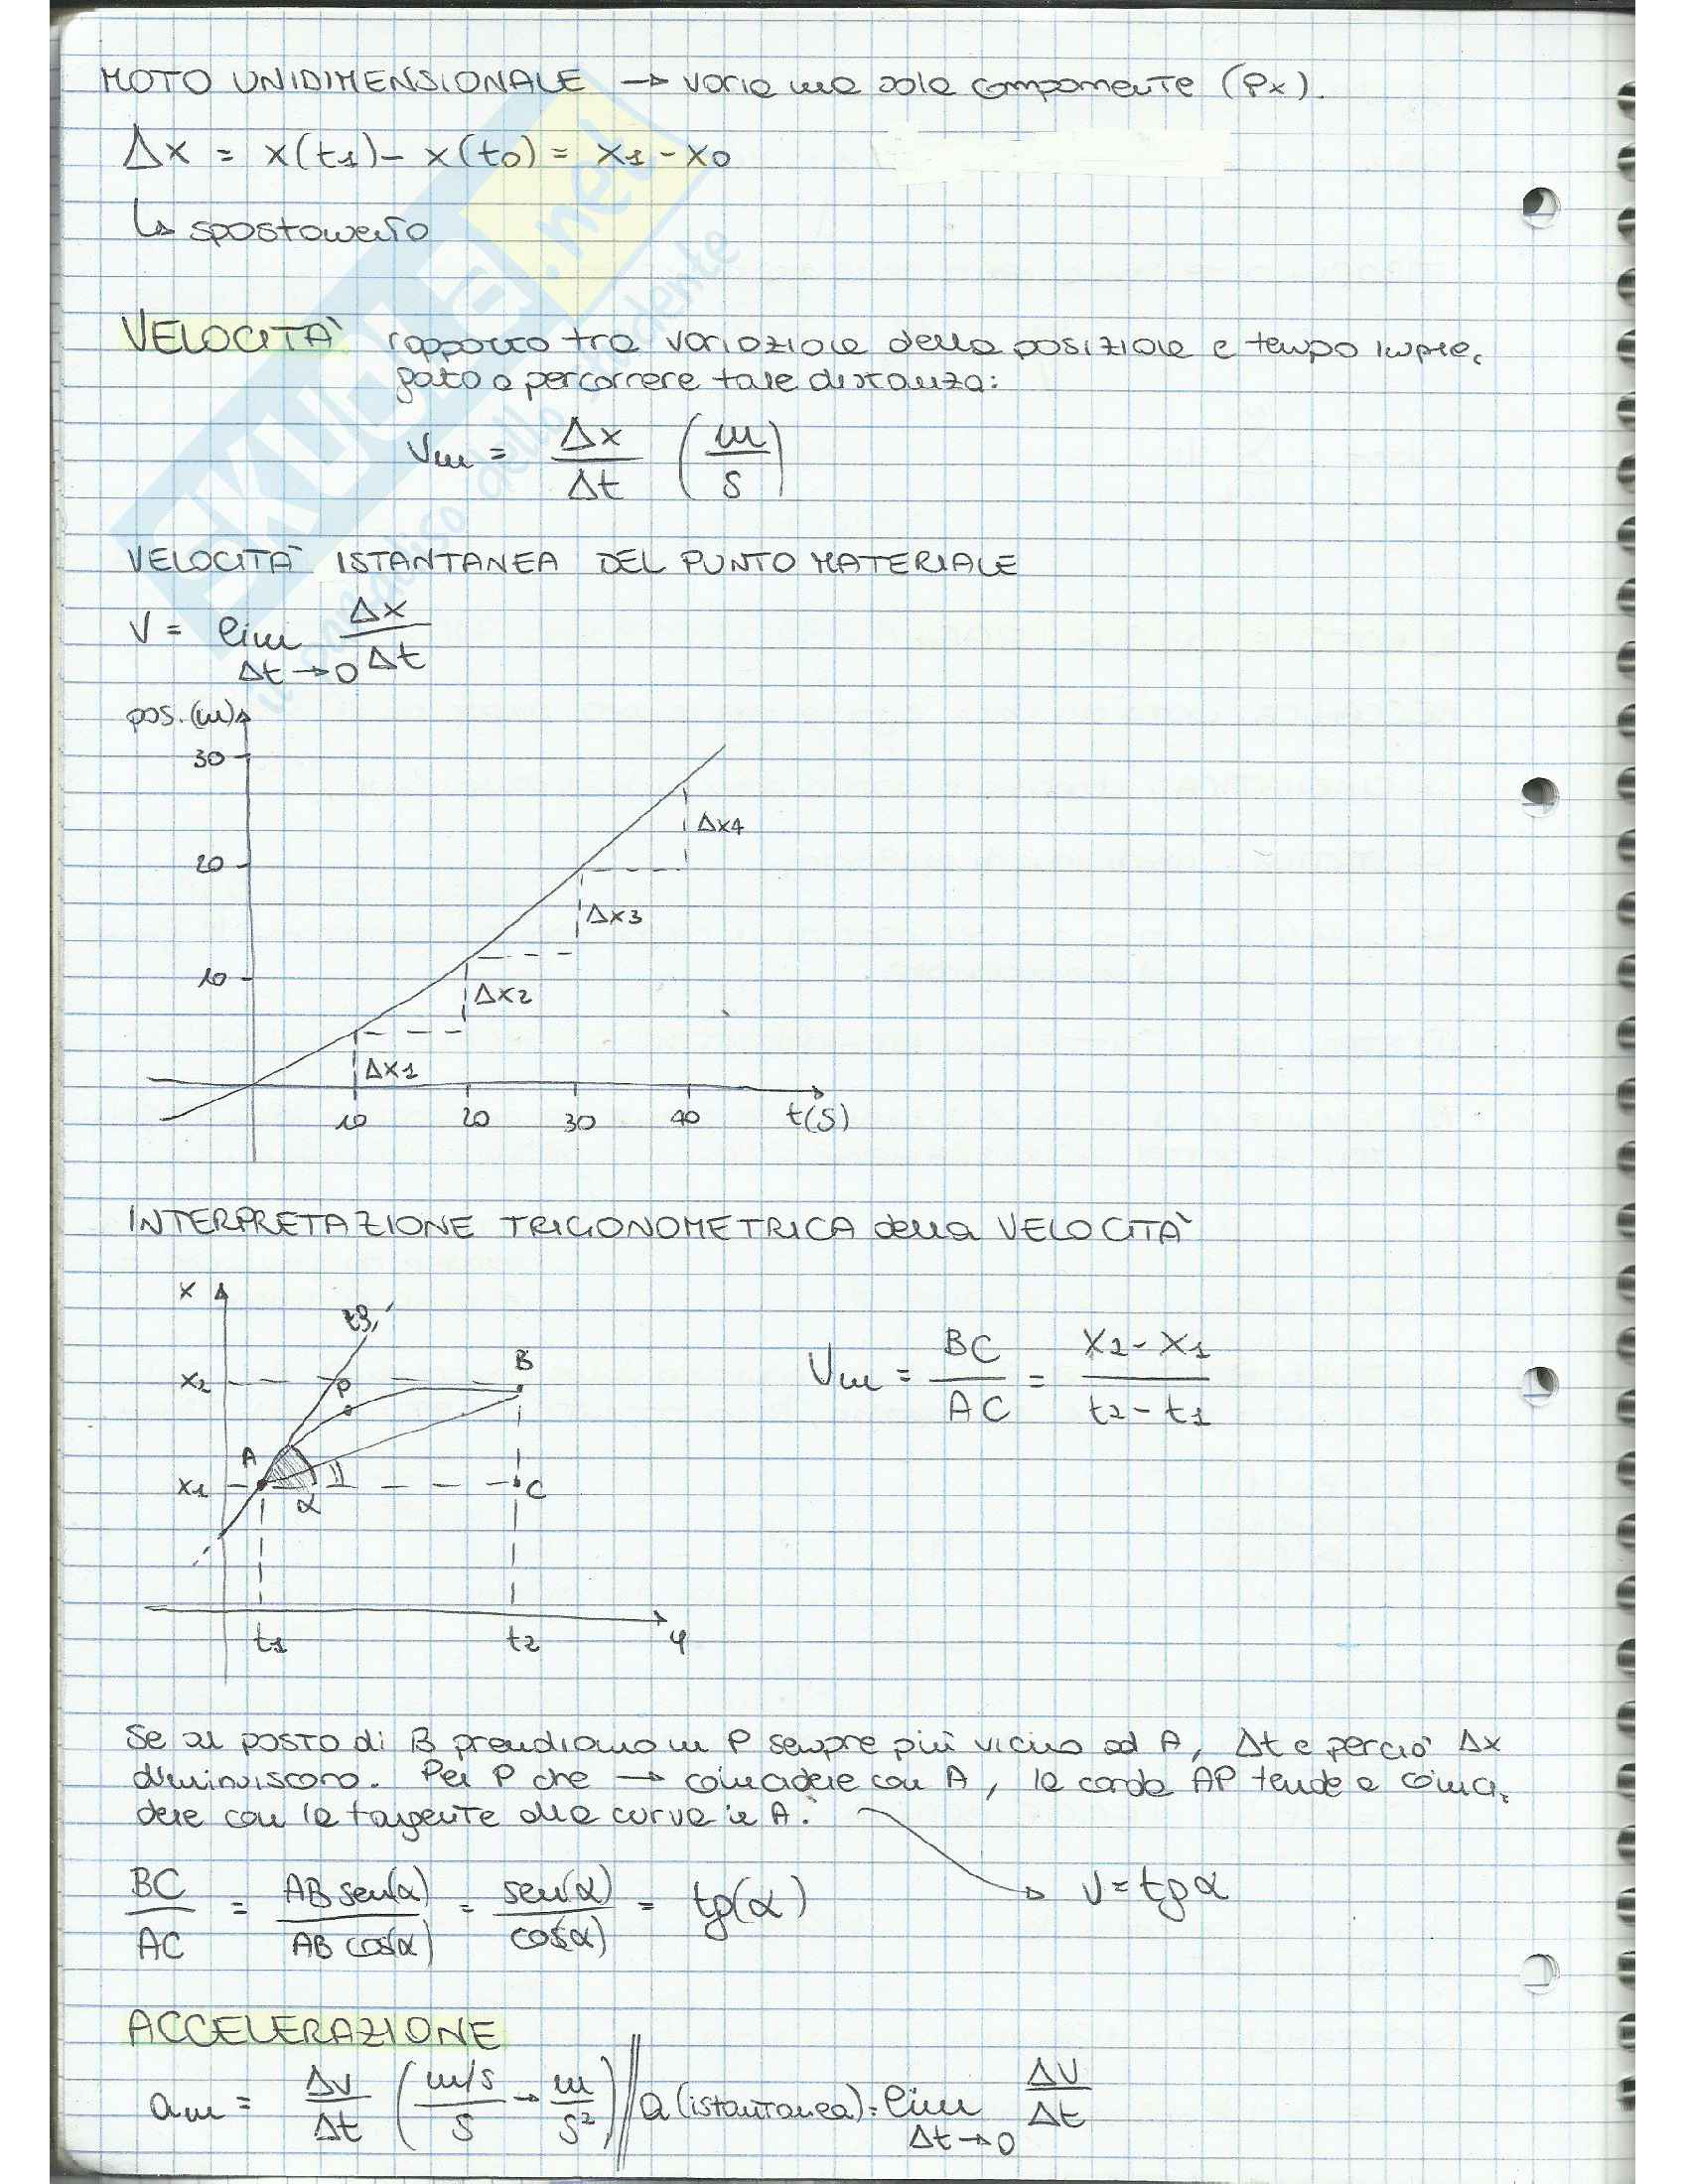 MOTO UNIDIMENSIONALE → varia una sola componente (Px).
Δx = x(t1) - x(t0) = x1 - x0
↳ spostamento
VELOCITÀ rapporto tra variazione della posizione e tempo impie.
gato a percorrere tale distanza:
Vm = Δx/Δt (m/s)
VELOCITÀ ISTANTANEA DEL PUNTO MATERIALE
V = lim Δt→0 Δx/Δt
pos.(m)
30
20
10
Δx4
Δx3
Δx2
Δx1
10 20 30 40 t(s)
INTERPRETAZIONE TRIGONOMETRICA della VELOCITÀ
x
tg
x2 P B
A
x1 α C
t1 t2
Vm = BC/AC = (x2 - x1)/(t2 - t1)
Se al posto di B prendiamo un P sempre più vicino ad A, Δt e perciò Δx
diminuiscono. Per P che → coincidere con A, la corda AP tende a coinci.
dere con la tangente alla curva in A.
BC/AC = AB sen(α)/AB cos(α) = sen(α)/cos(α) = tg(α) → V = tg α
ACCELERAZIONE
am = Δv/Δt (m/s/s → m/s²) // a (istantanea) = lim Δt→0 ΔV/Δt
SKUOLA.net